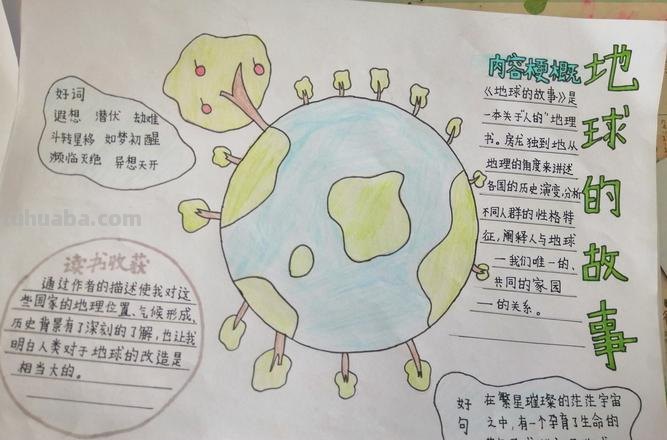 地球的故事
内容梗概
《地球的故事》是
一本关于"人的"地理
书。房龙独到地从
地理的角度来讲述
各国的历史演变,分析
不同人群的性格特
征,阐释人与地球
——我们唯一的、
共同的家园
——的关系。
好词
遐想 潜伏 劫难
斗转星移 如梦初醒
濒临灭绝 异想天开
读书收获
通过作者的描述使我对这
些国家的地理位置、气候形成、
历史背景有了深刻的了解,也让我
明白人类对于地球的改造是
相当大的。
好句
在繁星璀璨的茫茫宇宙
之中,有一个孕育了生命的
tuhuaba.com